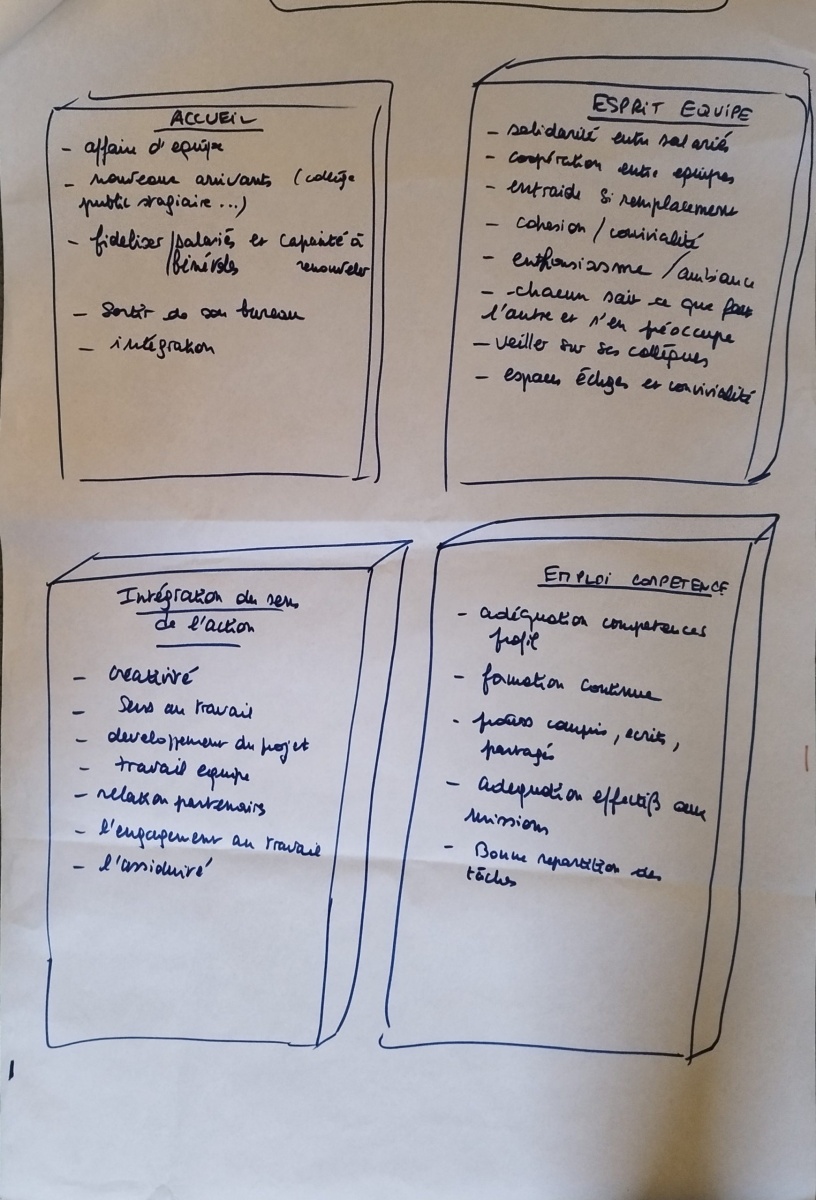 ACCUEIL
- affaire d'equipe
- nouveaux arrivants (collège
public stagiaire ...)
- fideliser / salariés et capacité à
/ bénévoles renouveler
- Sortir de son bureau
- intégration
ESPRIT EQUIPE
- solidarité entre salariés
- coopération entre equipes
- entraide si remplacement
- cohesion / convivialité
- enthousiasme / ambiance
- chacun sait ce que fait
l'autre et s'en préoccupe
- veiller sur ses collègues
- espaces et convivialité
Intégration du sens
de l'action
- créativité
- Sens au travail
- developpement du projet
- travail equipe
- relation partenaires
- l'engagement au travail
- l'assiduité
EMPLOI COMPETENCE
- adéquation competences
profil
- formation continue
- compris, ecrits,
partagés
- adequation effectifs aux
missions
- Bonne repartition des
tâches